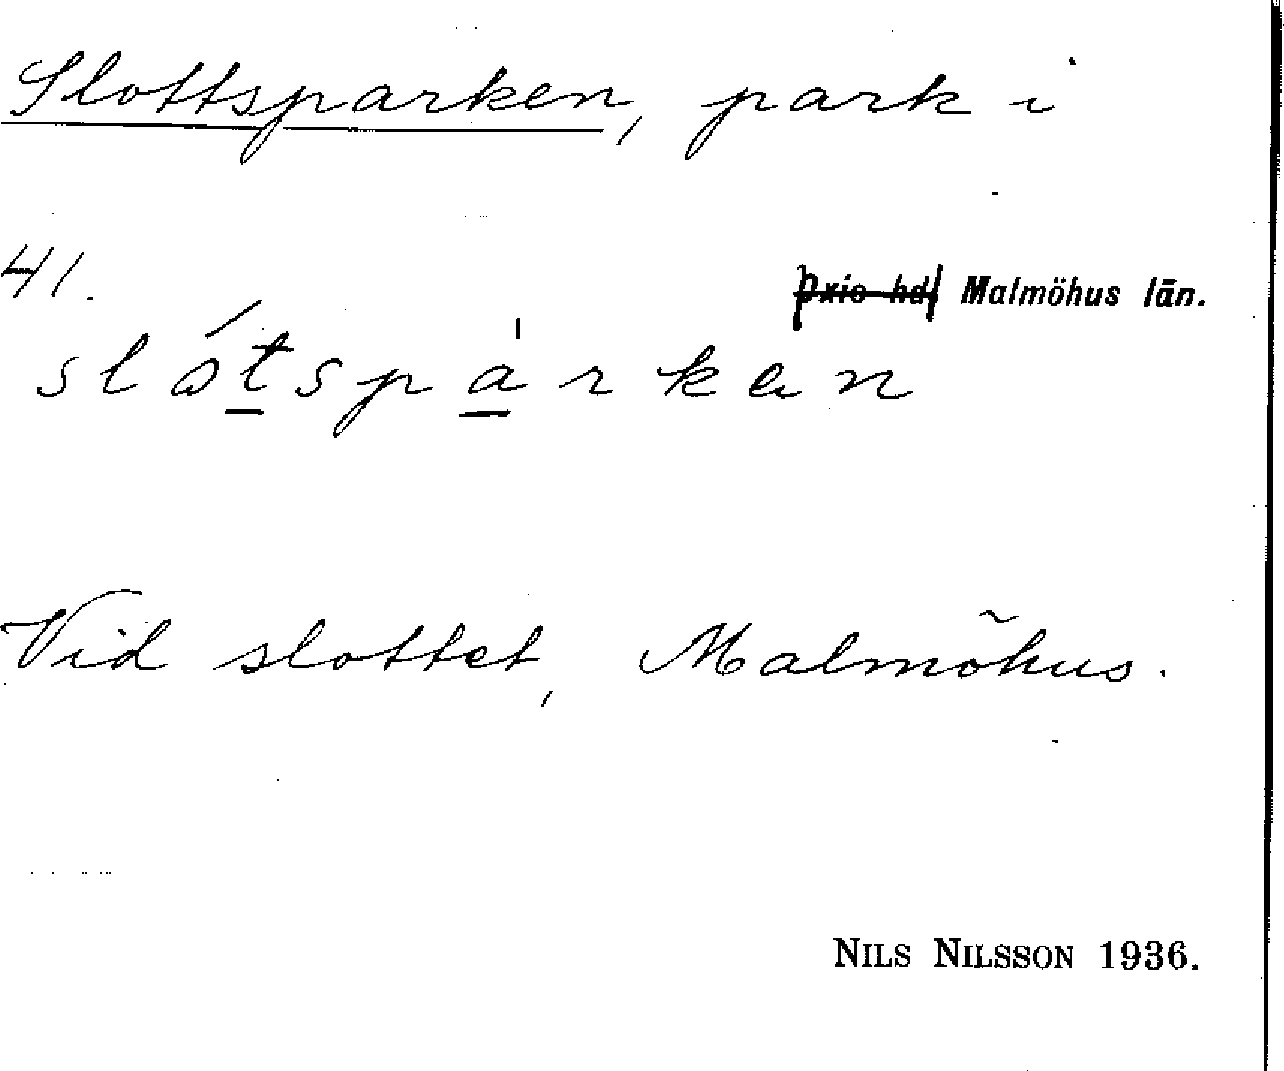 Slottsparken, park i
41.
Oxie hd Malmöhus län.
slótspàrken
Vid slottet, Malmöhus.
NILS NILSSON 1936.